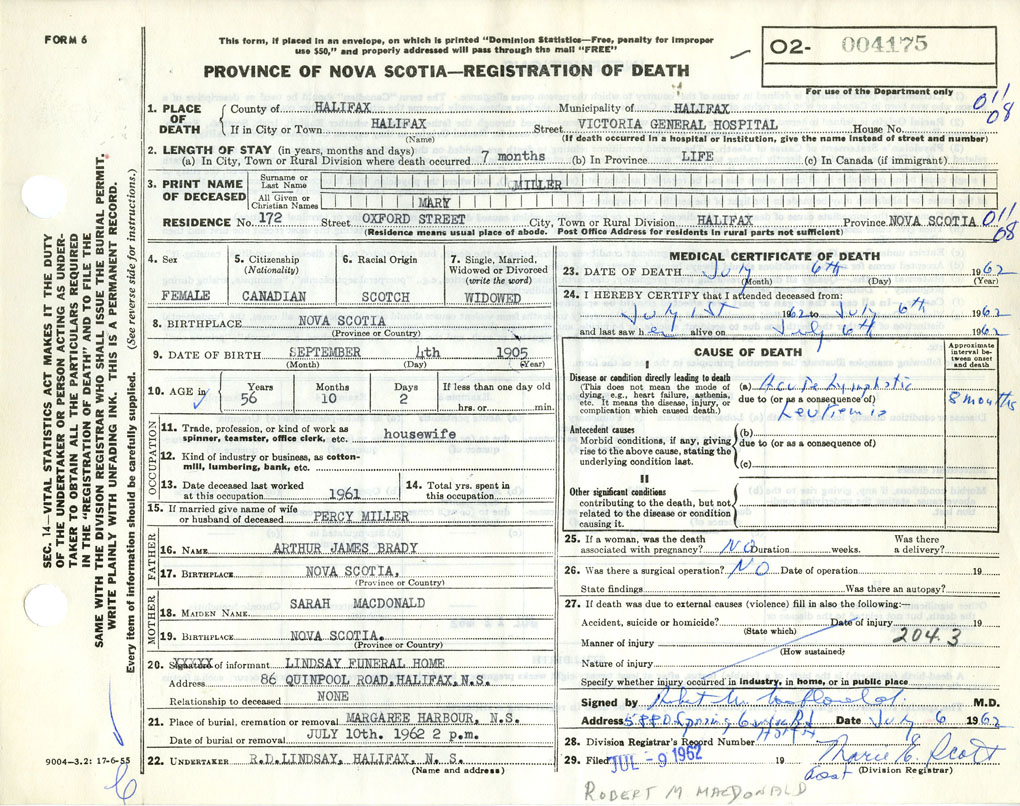 FORM 6
This form, if placed in an envelope, on which is printed "Dominion Statistics—Free, penalty for improper
use $50," and properly addressed will pass through the mail "FREE"
PROVINCE OF NOVA SCOTIA—REGISTRATION OF DEATH
O2- 004175
For use of the Department only
011
08
1. PLACE OF DEATH
County of HALIFAX Municipality of HALIFAX
If in City or Town HALIFAX Street VICTORIA GENERAL HOSPITAL House No.
(Name) (If death occurred in a hospital or institution, give the name instead of street and number)
2. LENGTH OF STAY (in years, months and days)
(a) In City, Town or Rural Division where death occurred 7 months (b) In Province LIFE (c) In Canada (if immigrant)
3. PRINT NAME OF DECEASED
Surname or Last Name MILLER
All Given or Christian Names MARY
RESIDENCE No. 172 Street OXFORD STREET City, Town or Rural Division HALIFAX Province NOVA SCOTIA
011
08
(Residence means usual place of abode. Post Office Address for residents in rural parts not sufficient)
4. Sex
FEMALE
5. Citizenship
(Nationality)
CANADIAN
6. Racial Origin
SCOTCH
7. Single, Married,
Widowed or Divorced
(write the word)
WIDOWED
8. BIRTHPLACE NOVA SCOTIA
(Province or Country)
9. DATE OF BIRTH SEPTEMBER 4th 1905
(Month) (Day) (Year)
10. AGE in
Years Months Days If less than one day old
56 10 2 hrs. or min.
OCCUPATION
11. Trade, profession, or kind of work as
spinner, teamster, office clerk, etc. housewife
12. Kind of industry or business, as cotton-
mill, lumbering, bank, etc.
13. Date deceased last worked
at this occupation 1961
14. Total yrs. spent in
this occupation
15. If married give name of wife
or husband of deceased PERCY MILLER
FATHER
16. NAME ARTHUR JAMES BRADY
17. BIRTHPLACE NOVA SCOTIA,
(Province or Country)
MOTHER
18. MAIDEN NAME SARAH MACDONALD
19. BIRTHPLACE NOVA SCOTIA.
(Province or Country)
20. Signature of informant LINDSAY FUNERAL HOME
Address 86 QUINPOOL ROAD, HALIFAX, N.S.
Relationship to deceased NONE
21. Place of burial, cremation or removal MARGAREE HARBOUR, N.S.
Date of burial or removal JULY 10th. 1962 2 p.m.
22. UNDERTAKER R.D.LINDSAY, HALIFAX, N. S.
(Name and address)
MEDICAL CERTIFICATE OF DEATH
23. DATE OF DEATH July 6th 1962
(Month) (Day) (Year)
24. I HEREBY CERTIFY that I attended deceased from:
July 1st 1962 to July 6th 1962
and last saw her alive on July 6th 1962
CAUSE OF DEATH
Approximate
interval be-
tween onset
and death
I
Disease or condition directly leading to death
(This does not mean the mode of
dying, e.g., heart failure, asthenia,
etc. It means the disease, injury, or
complication which caused death.)
(a) Acute Lymphatic
due to (or as a consequence of)
Leukemia
8 months
Antecedent causes
Morbid conditions, if any, giving
rise to the above cause, stating the
underlying condition last.
(b)
due to (or as a consequence of)
(c)
II
Other significant conditions
contributing to the death, but not
related to the disease or condition
causing it.
25. If a woman, was the death
associated with pregnancy? NO Duration weeks. Was there
a delivery?
26. Was there a surgical operation? NO Date of operation 19
State findings Was there an autopsy?
27. If death was due to external causes (violence) fill in also the following:—
Accident, suicide or homicide? Date of injury 19
(State which)
Manner of injury 204.3
(How sustained)
Nature of injury
Specify whether injury occurred in industry, in home, or in public place
Signed by M.D.
Address Spring Garden Rd Date July 6 1962
28. Division Registrar's Record Number
29. Filed JUL -9 1962 19 Marie E. Scott
(Division Registrar)
ROBERT M. MACDONALD
SEC. 14—VITAL STATISTICS ACT MAKES IT THE DUTY
OF THE UNDERTAKER OR PERSON ACTING AS UNDER-
TAKER TO OBTAIN ALL THE PARTICULARS REQUIRED
IN THE "REGISTRATION OF DEATH" AND TO FILE THE
SAME WITH THE DIVISION REGISTRAR WHO SHALL ISSUE THE BURIAL PERMIT.
WRITE PLAINLY WITH UNFADING INK. THIS IS A PERMANENT RECORD.
Every item of information should be carefully supplied. (See reverse side for instructions.)
9004—3.2: 17-6-55